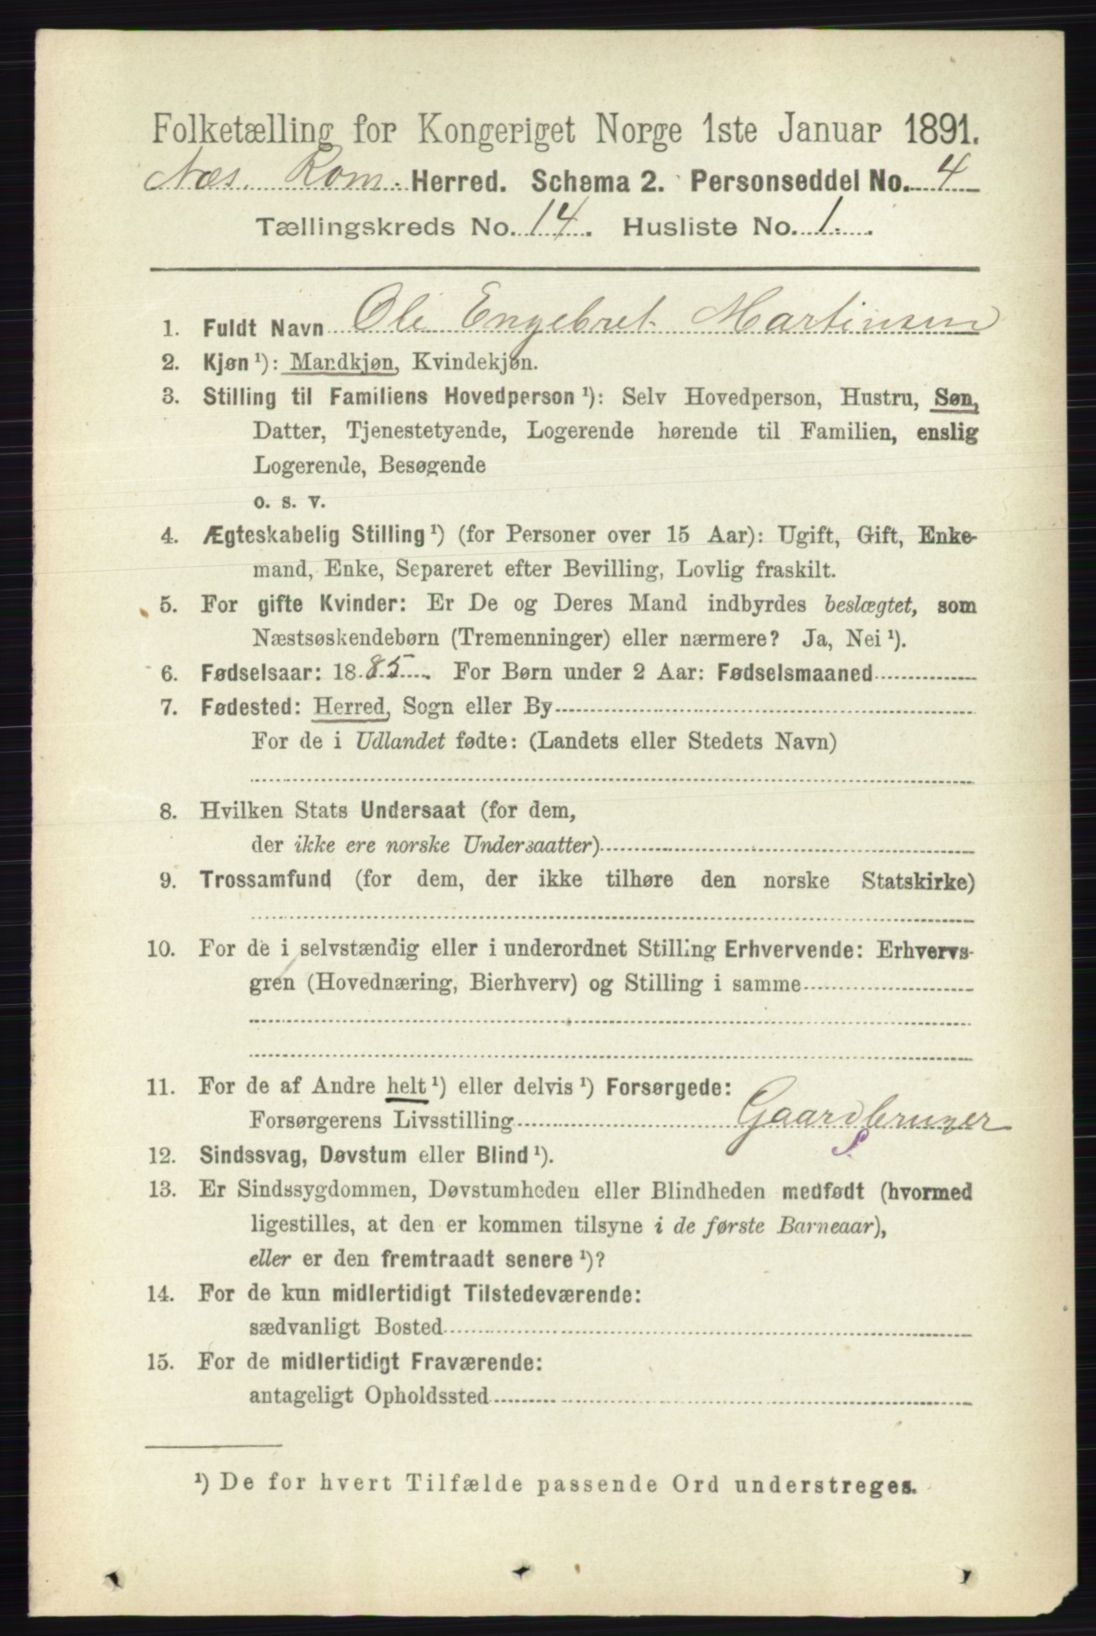 Folketælling for Kongeriget Norge 1ste Januar 1891.
Næs. Rom. Herred. Schema 2. Personseddel No. 4
Tællingskreds No. 14. Husliste No. 1.
1. Fuldt Navn Ole Engebret Martinsen
2. Kjøn ¹): Mandkjøn, Kvindekjøn.
3. Stilling til Familiens Hovedperson ¹): Selv Hovedperson, Hustru, Søn,
Datter, Tjenestetyende, Logerende hørende til Familien, enslig
Logerende, Besøgende
o. s. v.
4. Ægteskabelig Stilling ¹) (for Personer over 15 Aar): Ugift, Gift, Enke-
mand, Enke, Separeret efter Bevilling, Lovlig fraskilt.
5. For gifte Kvinder: Er De og Deres Mand indbyrdes beslægtet, som
Næstsøskendebørn (Tremenninger) eller nærmere? Ja, Nei ¹).
6. Fødselsaar: 1885. For Børn under 2 Aar: Fødselsmaaned
7. Fødested: Herred, Sogn eller By
For de i Udlandet fødte: (Landets eller Stedets Navn)
8. Hvilken Stats Undersaat (for dem,
der ikke ere norske Undersaatter)
9. Trossamfund (for dem, der ikke tilhøre den norske Statskirke)
10. For de i selvstændig eller i underordnet Stilling Erhvervende: Erhvervs-
gren (Hovednæring, Bierhverv) og Stilling i samme
11. For de af Andre helt ¹) eller delvis ¹) Forsørgede:
Forsørgerens Livsstilling Gaardbruger
S.
12. Sindssvag, Døvstum eller Blind ¹).
13. Er Sindssygdommen, Døvstumheden eller Blindheden medfødt (hvormed
ligestilles, at den er kommen tilsyne i de første Barneaar),
eller er den fremtraadt senere ¹)?
14. For de kun midlertidigt Tilstedeværende:
sædvanligt Bosted
15. For de midlertidigt Fraværende:
antageligt Opholdssted
¹) De for hvert Tilfælde passende Ord understreges.